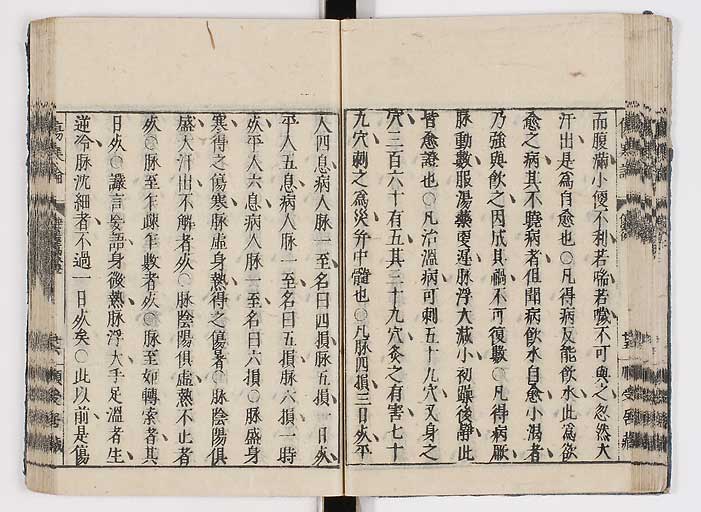 而腹滿小便不利若喘若噦不可與之忽然大
汗出是爲自愈也○凡得病反能飲水此爲欲
愈之病其不曉病者但聞病飲水自愈小渴者
乃強與飲之因成其禍不可復數○凡得病厥
脉動數服湯藥更遲脉浮大減小初躁後靜此
皆愈證也○凡治溫病可刺五十九穴又身之
穴三百六十有五其三十九穴灸之有害七十
九穴刺之爲災并中髓也○凡脉四損三日死平
人四息病人脉一至名曰四損脉五損一日死
平人五息病人脉一至名曰五損脉六損一時
死平人六息病人脉一至名曰六損○脉盛身
寒得之傷寒脉虛身熱得之傷暑○脉陰陽俱
盛大汗出不解者死○脉陰陽俱虛熱不止者
死○脉至乍疎乍數者死○脉至如轉索者其
日死○讝言妄語身微熱脉浮大手足溫者生
逆冷脉沉細者不過一日死矣○此以前是傷